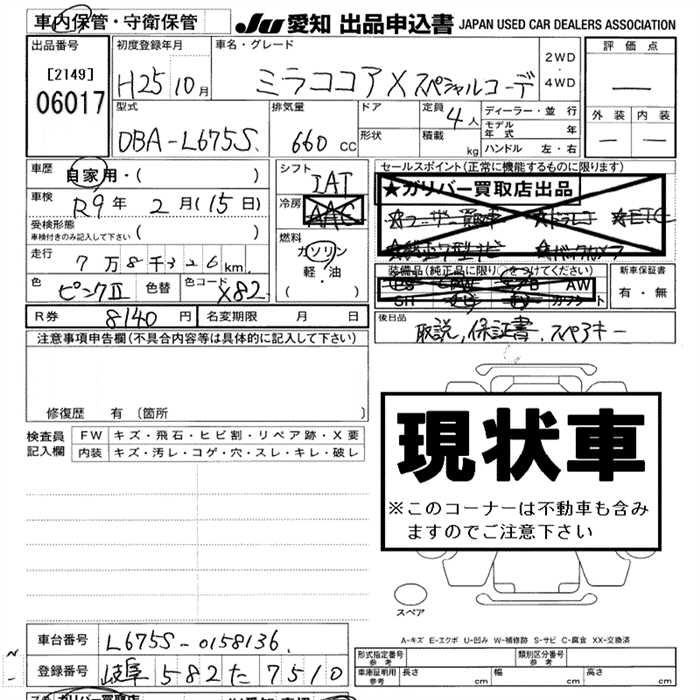 車内保管・守衛保管 JU 愛知 出品申込書 JAPAN USED CAR DEALERS ASSOCIATION
出品番号 初度登録年月 車名・グレード 2WD・4WD 評価点
[2149] 06017 H25 10月 ミラココアX スペシャルコーデ —
型式 排気量 ドア 定員 4人 ディーラー・並行 外装 内装
DBA-L675S 660 CC 形状 積載 kg モデル年式 年 — —
ハンドル 左・右
車歴 自家用・( ) シフト IAT セールスポイント(正常に機能するものに限ります)
車検 R9年 2月(15日) 冷房 AAC ★ガリバー買取店出品
受検形態 車検付きのみ記入して下さい ( ) 燃料 ★ETC
走行 7万8千326km ガソリン 軽・油 ( ) ★バックカメラ
色 ピンクⅡ 色替 色コード X82 装備品(純正品に限り○をつけてください) 新車保証書
AW 有・無
R券 8140円 名変期限 月 日 後日品
注意事項申告欄(不具合内容等は具体的に記入して下さい) 取説,保証書.スペアキー
修復歴 有 〔箇所 〕
現状車
※このコーナーは不動車も含み
ますのでご注意下さい
検査員記入欄 FW キズ・飛石・ヒビ割・リペア跡・X要
内装 キズ・汚レ・コゲ・穴・スレ・キレ・破レ
スペア
A-キズ E-エクボ U-凹み W-補修跡 S-サビ C-腐食 XX-交換済
車台番号 L675S-0158136 形式指定番号 参考 類別区分番号 参考
登録番号 岐阜 582 た 7510 車庫証明用 参考 長さ cm 幅 cm 高さ cm
ガリバー買取店